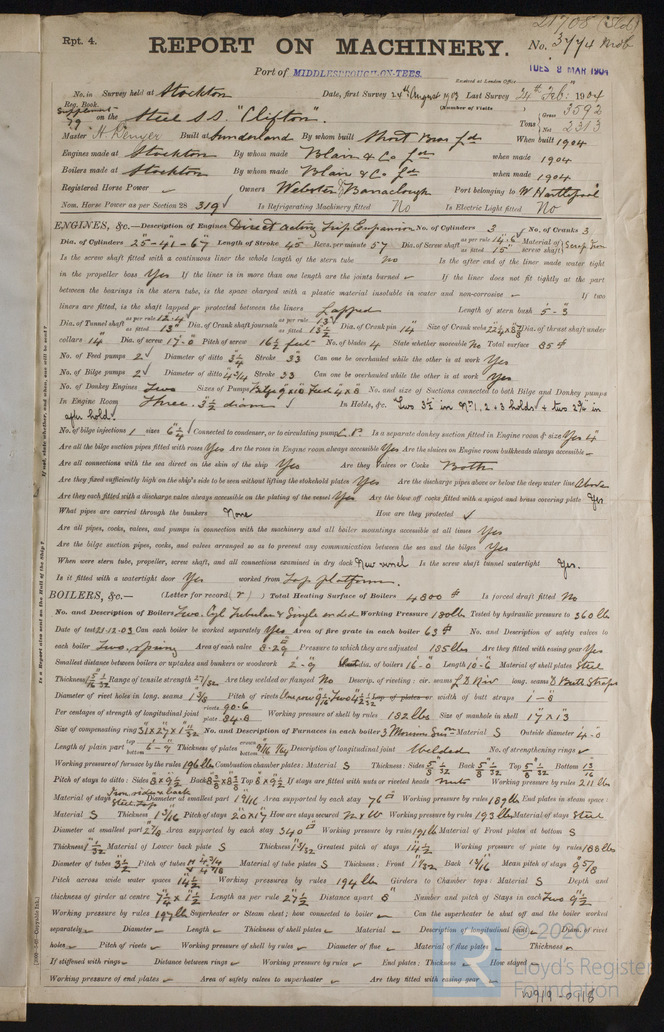 21708
Rpt. 4.
REPORT ON MACHINERY.
No. 3774 Mdb
Port of MIDDLESBROUGH-ON-TEES.
Received at London Office TUES 8 MAR 1904
No. in Survey held at Stockton Date, first Survey 24th August 1903 Last Survey 24th Feb: 1904
Reg. Book. (Number of Visits
Supplement 79 on the Steel S.S. "Clifton" Tons Gross 3592 Net 2313
Master Built at Sunderland By whom built Short Bros Ld When built 1904
Engines made at Stockton By whom made Blair & Co Ld when made 1904
Boilers made at Stockton By whom made Blair & Co Ld when made 1904
Registered Horse Power Owners Webster & Barraclough Port belonging to W. Hartlepool
Nom. Horse Power as per Section 28 319 Is Refrigerating Machinery fitted No Is Electric Light fitted No
ENGINES, &c.—Description of Engines Direct acting Trip. Expansion No. of Cylinders 3 No. of Cranks 3
Dia. of Cylinders 25-41-67 Length of Stroke 45 Revs. per minute 57 Dia. of Screw shaft as per rule 14.6 as fitted 15" Material of screw shaft Scrap Iron
Is the screw shaft fitted with a continuous liner the whole length of the stern tube No Is the after end of the liner made water tight
in the propeller boss Yes If the liner is in more than one length are the joints burned If the liner does not fit tightly at the part
between the bearings in the stern tube, is the space charged with a plastic material insoluble in water and non-corrosive If two
liners are fitted, is the shaft lapped or protected between the liners Lapped Length of stern bush 5-3
Dia. of Tunnel shaft as per rule 12.4 as fitted 13" Dia. of Crank shaft journals as per rule 13" as fitted 13½ Dia. of Crank pin 14" Size of Crank webs Dia. of thrust shaft under
collars 14" Dia. of screw 17-0 Pitch of screw 16½ feet No. of blades 4 State whether moveable No Total surface 85 ft
No. of Feed pumps 2 Diameter of ditto 3¼ Stroke 33 Can one be overhauled while the other is at work Yes
No. of Bilge pumps 2 Diameter of ditto 4¾ Stroke 33 Can one be overhauled while the other is at work Yes
No. of Donkey Engines Two Sizes of Pumps Bilge 9x10 Feed 4x8 No. and size of Suctions connected to both Bilge and Donkey pumps
In Engine Room Three. 3½ diam In Holds, &c. Two 3½ in No. 1, 2 & 3 holds & two 2¾ in
after hold
No. of bilge injections 1 sizes 6¼ Connected to condenser, or to circulating pump C.P. Is a separate donkey suction fitted in Engine room & size Yes 4"
Are all the bilge suction pipes fitted with roses Yes Are the roses in Engine room always accessible Yes Are the sluices on Engine room bulkheads always accessible
Are all connections with the sea direct on the skin of the ship Yes Are they Valves or Cocks Both
Are they fixed sufficiently high on the ship's side to be seen without lifting the stokehold plates Yes Are the discharge pipes above or below the deep water line Above
Are they each fitted with a discharge valve always accessible on the plating of the vessel Yes Are the blow off cocks fitted with a spigot and brass covering plate Yes
What pipes are carried through the bunkers None How are they protected
Are all pipes, cocks, valves, and pumps in connection with the machinery and all boiler mountings accessible at all times Yes
Are the bilge suction pipes, cocks, and valves arranged so as to prevent any communication between the sea and the bilges Yes
When were stern tube, propeller, screw shaft, and all connections examined in dry dock New vessel Is the screw shaft tunnel watertight Yes.
Is it fitted with a watertight door Yes worked from Top platform.
BOILERS, &c.— (Letter for record (r) ) Total Heating Surface of Boilers 4800 ft Is forced draft fitted No
No. and Description of Boilers Two. Cyl. Tubular & Single ended Working Pressure 180 lbs Tested by hydraulic pressure to 360 lbs
Date of test 21.12.03 Can each boiler be worked separately Yes Area of fire grate in each boiler 63 ft No. and Description of safety valves to
each boiler Two, Spring Area of each valve 8.29 Pressure to which they are adjusted 185 lbs Are they fitted with easing gear Yes
Smallest distance between boilers or uptakes and bunkers or woodwork 2'-9 dia. of boilers 16-0 Length 10-6 Material of shell plates Steel
Thickness Range of tensile strength Are they welded or flanged No Descrip. of riveting: cir. seams L D Riv long. seams D Butt Straps
Diameter of rivet holes in long. seams 1 3/8 Pitch of rivets Lap of plates or width of butt straps 1-8
Per centages of strength of longitudinal joint rivets 90.6 plate 84.8 Working pressure of shell by rules 182 lbs Size of manhole in shell 17x13
Size of compensating ring No. and Description of Furnaces in each boiler 3 Morison Material S Outside diameter 4-0
Length of plain part top bottom 6-9 Thickness of plates crown bottom 9/16 Description of longitudinal joint Welded No. of strengthening rings
Working pressure of furnace by the rules 196 lbs Combustion chamber plates: Material S Thickness: Sides Back Top Bottom 13/16
Pitch of stays to ditto: Sides 8x9½ Back Top 8x9½ If stays are fitted with nuts or riveted heads nuts Working pressure by rules 211 lbs
Material of stays Iron sides & back Steel top Diameter at smallest part Area supported by each stay 76 Working pressure by rules 189 lbs End plates in steam space:
Material S Thickness 1 3/16 Pitch of stays 20x17 How are stays secured N & W Working pressure by rules 193 lbs Material of stays Steel
Diameter at smallest part 2 7/8 Area supported by each stay 340 Working pressure by rules 191 lbs Material of Front plates at bottom S
Thickness Material of Lower back plate S Thickness Greatest pitch of stays 14½ Working pressure of plate by rules 188 lbs
Diameter of tubes 3½ Pitch of tubes Material of tube plates S Thickness: Front Back 13/16 Mean pitch of stays 9 5/8
Pitch across wide water spaces 14½ Working pressures by rules 194 lbs Girders to Chamber tops: Material S Depth and
thickness of girder at centre Length as per rule 27½ Distance apart 8" Number and pitch of Stays in each Two 9½
Working pressure by rules 197 lbs Superheater or Steam chest; how connected to boiler Can the superheater be shut off and the boiler worked
separately Diameter Length Thickness of shell plates Material Description of longitudinal joint Diam. of rivet
holes Pitch of rivets Working pressure of shell by rules Diameter of flue Material of flue plates Thickness
If stiffened with rings Distance between rings Working pressure by rules End plates: Thickness How stayed
Working pressure of end plates Area of safety valves to superheater Are they fitted with easing gear
© 2020
Lloyd's Register
Foundation
W919-0118
Is a Report also sent on the Hull of the Ship?
If not, state whether, and when, one will be sent?